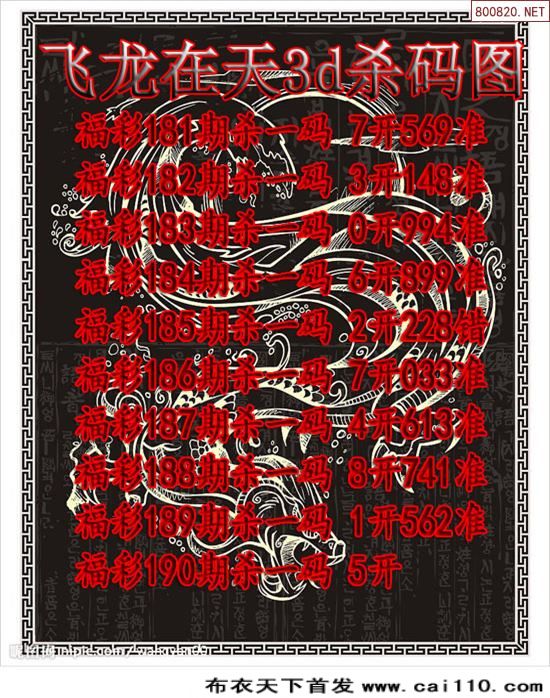 800820.NET
飞龙在天3d杀码图
福彩181期杀一码 7开569准
福彩182期杀一码 3开148准
福彩183期杀一码 0开994准
福彩184期杀一码 6开899准
福彩185期杀一码 2开228错
福彩186期杀一码 7开033准
福彩187期杀一码 4开613准
福彩188期杀一码 8开741准
福彩189期杀一码 1开562准
福彩190期杀一码 5开
布衣天下首发 www.cai110.com